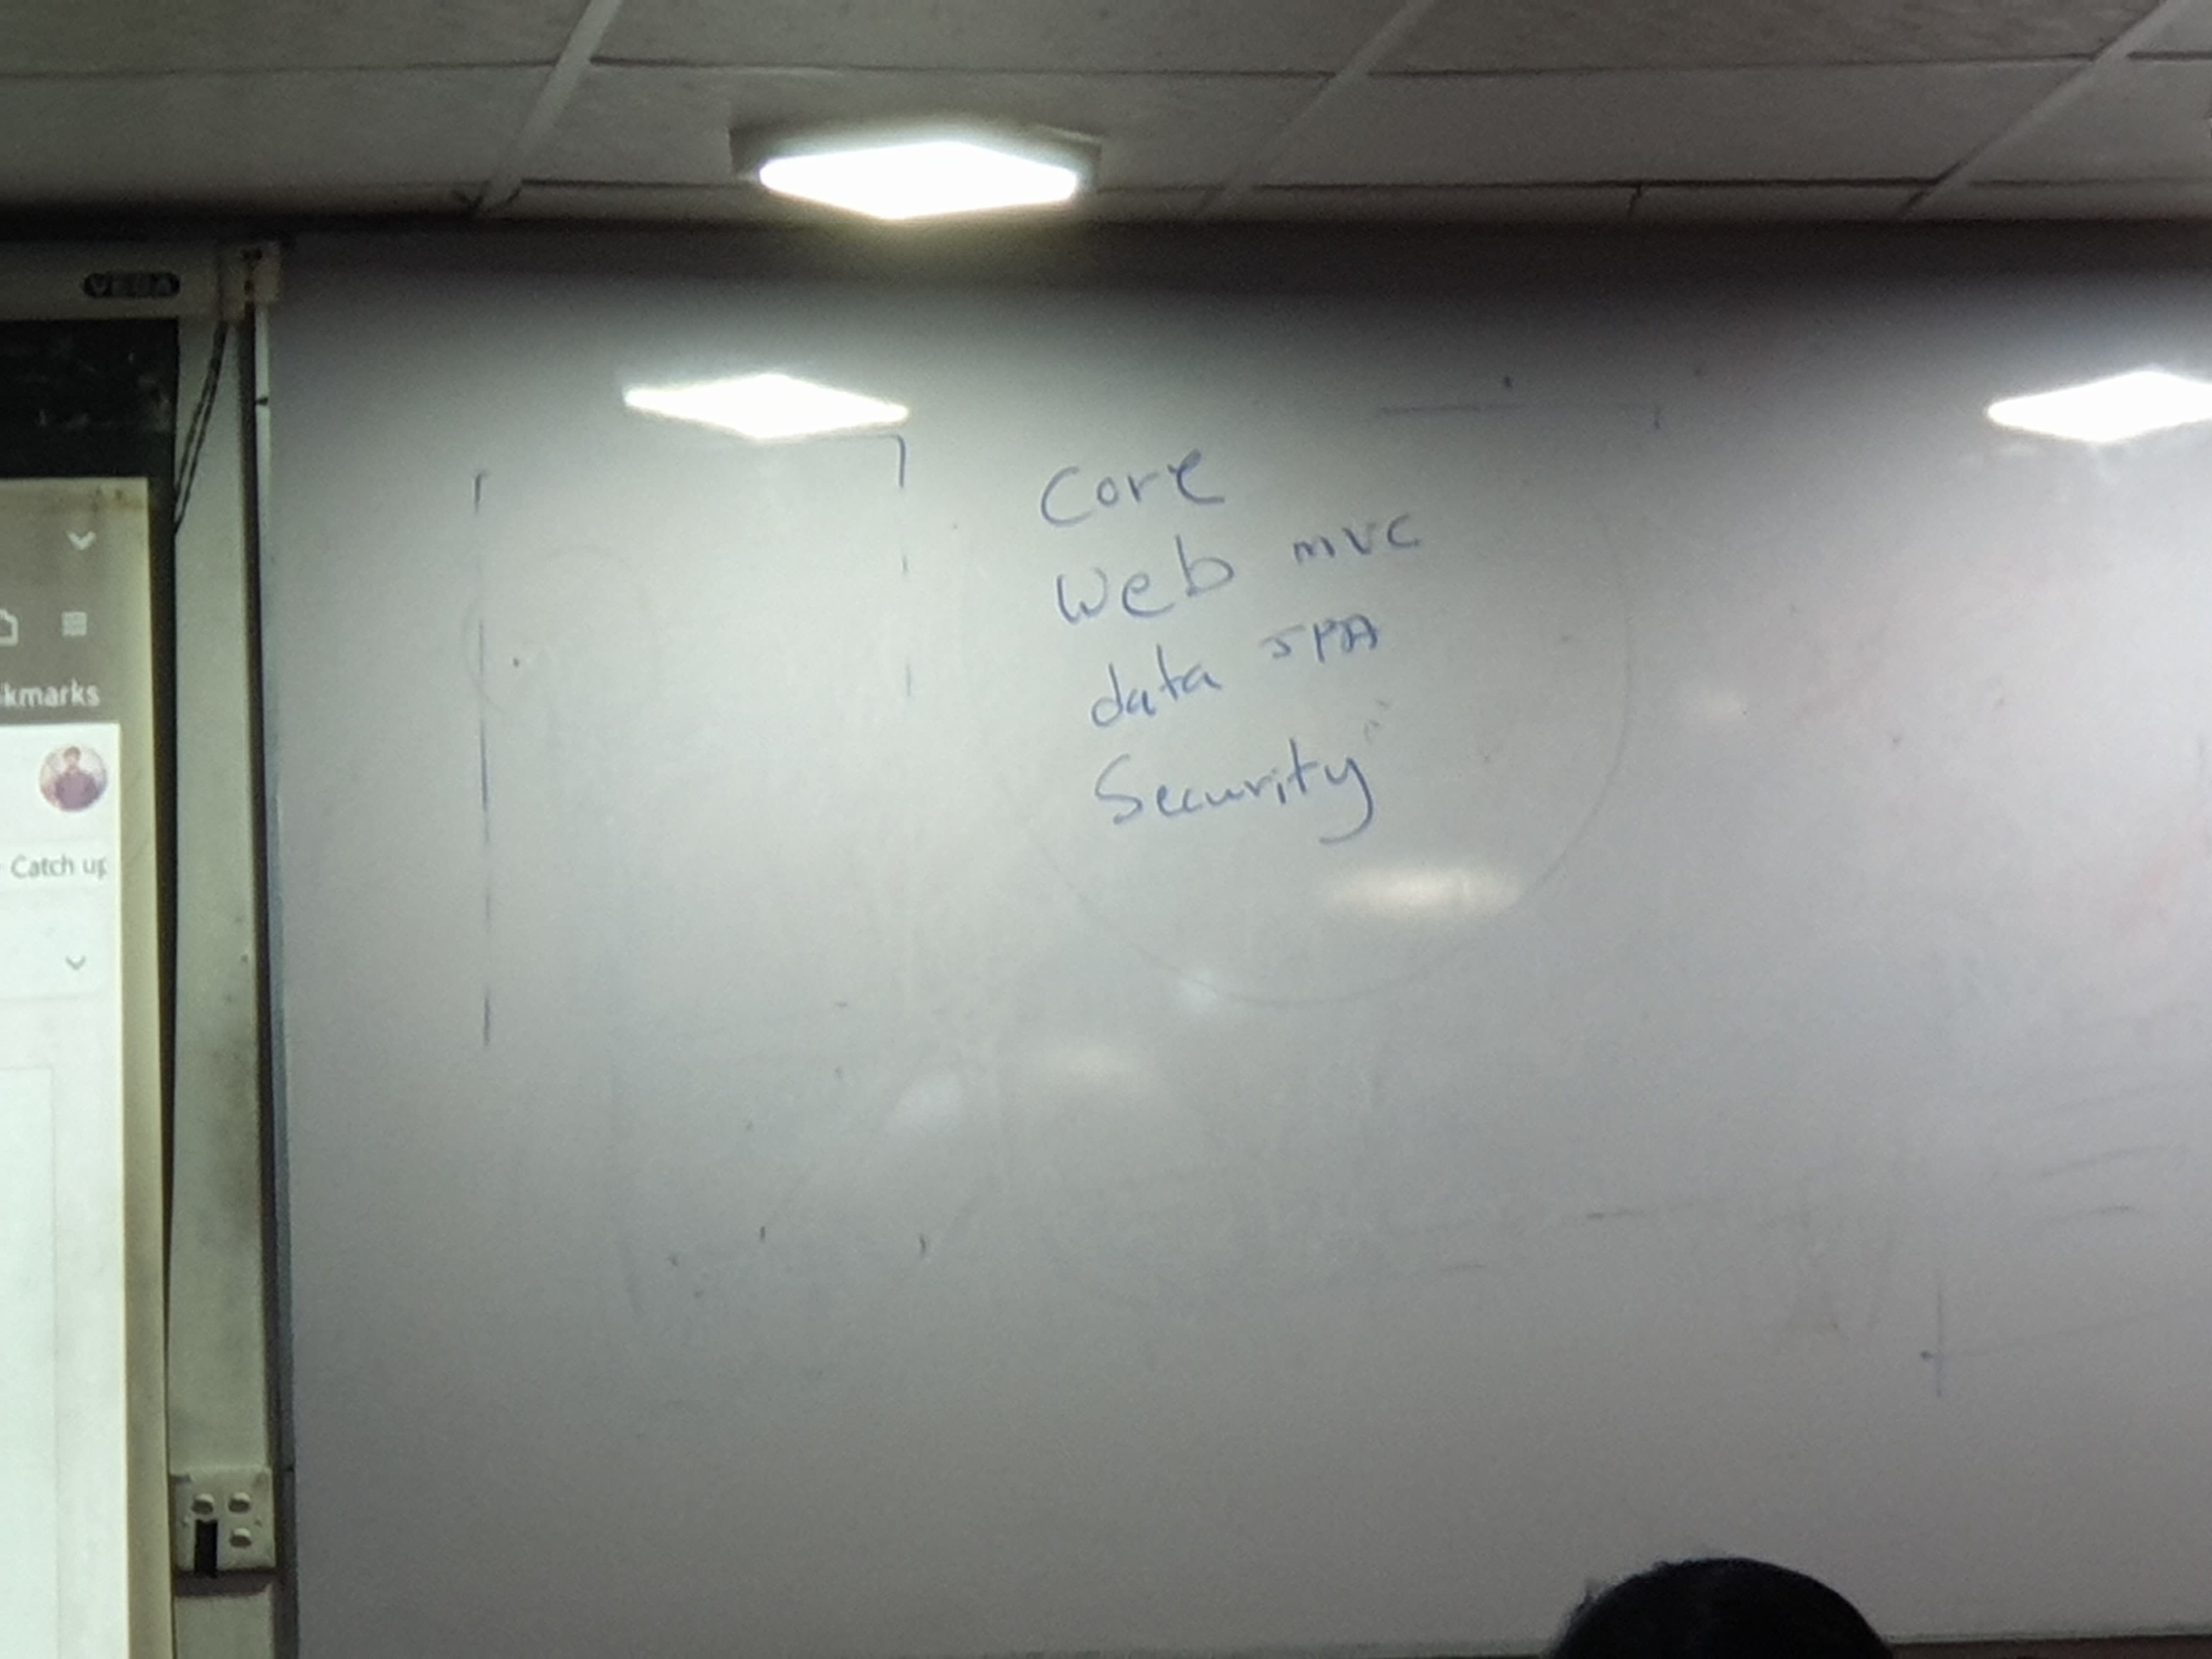 VEGA
kmarks
Catch up
Core
Web mvc
data JPA
Security